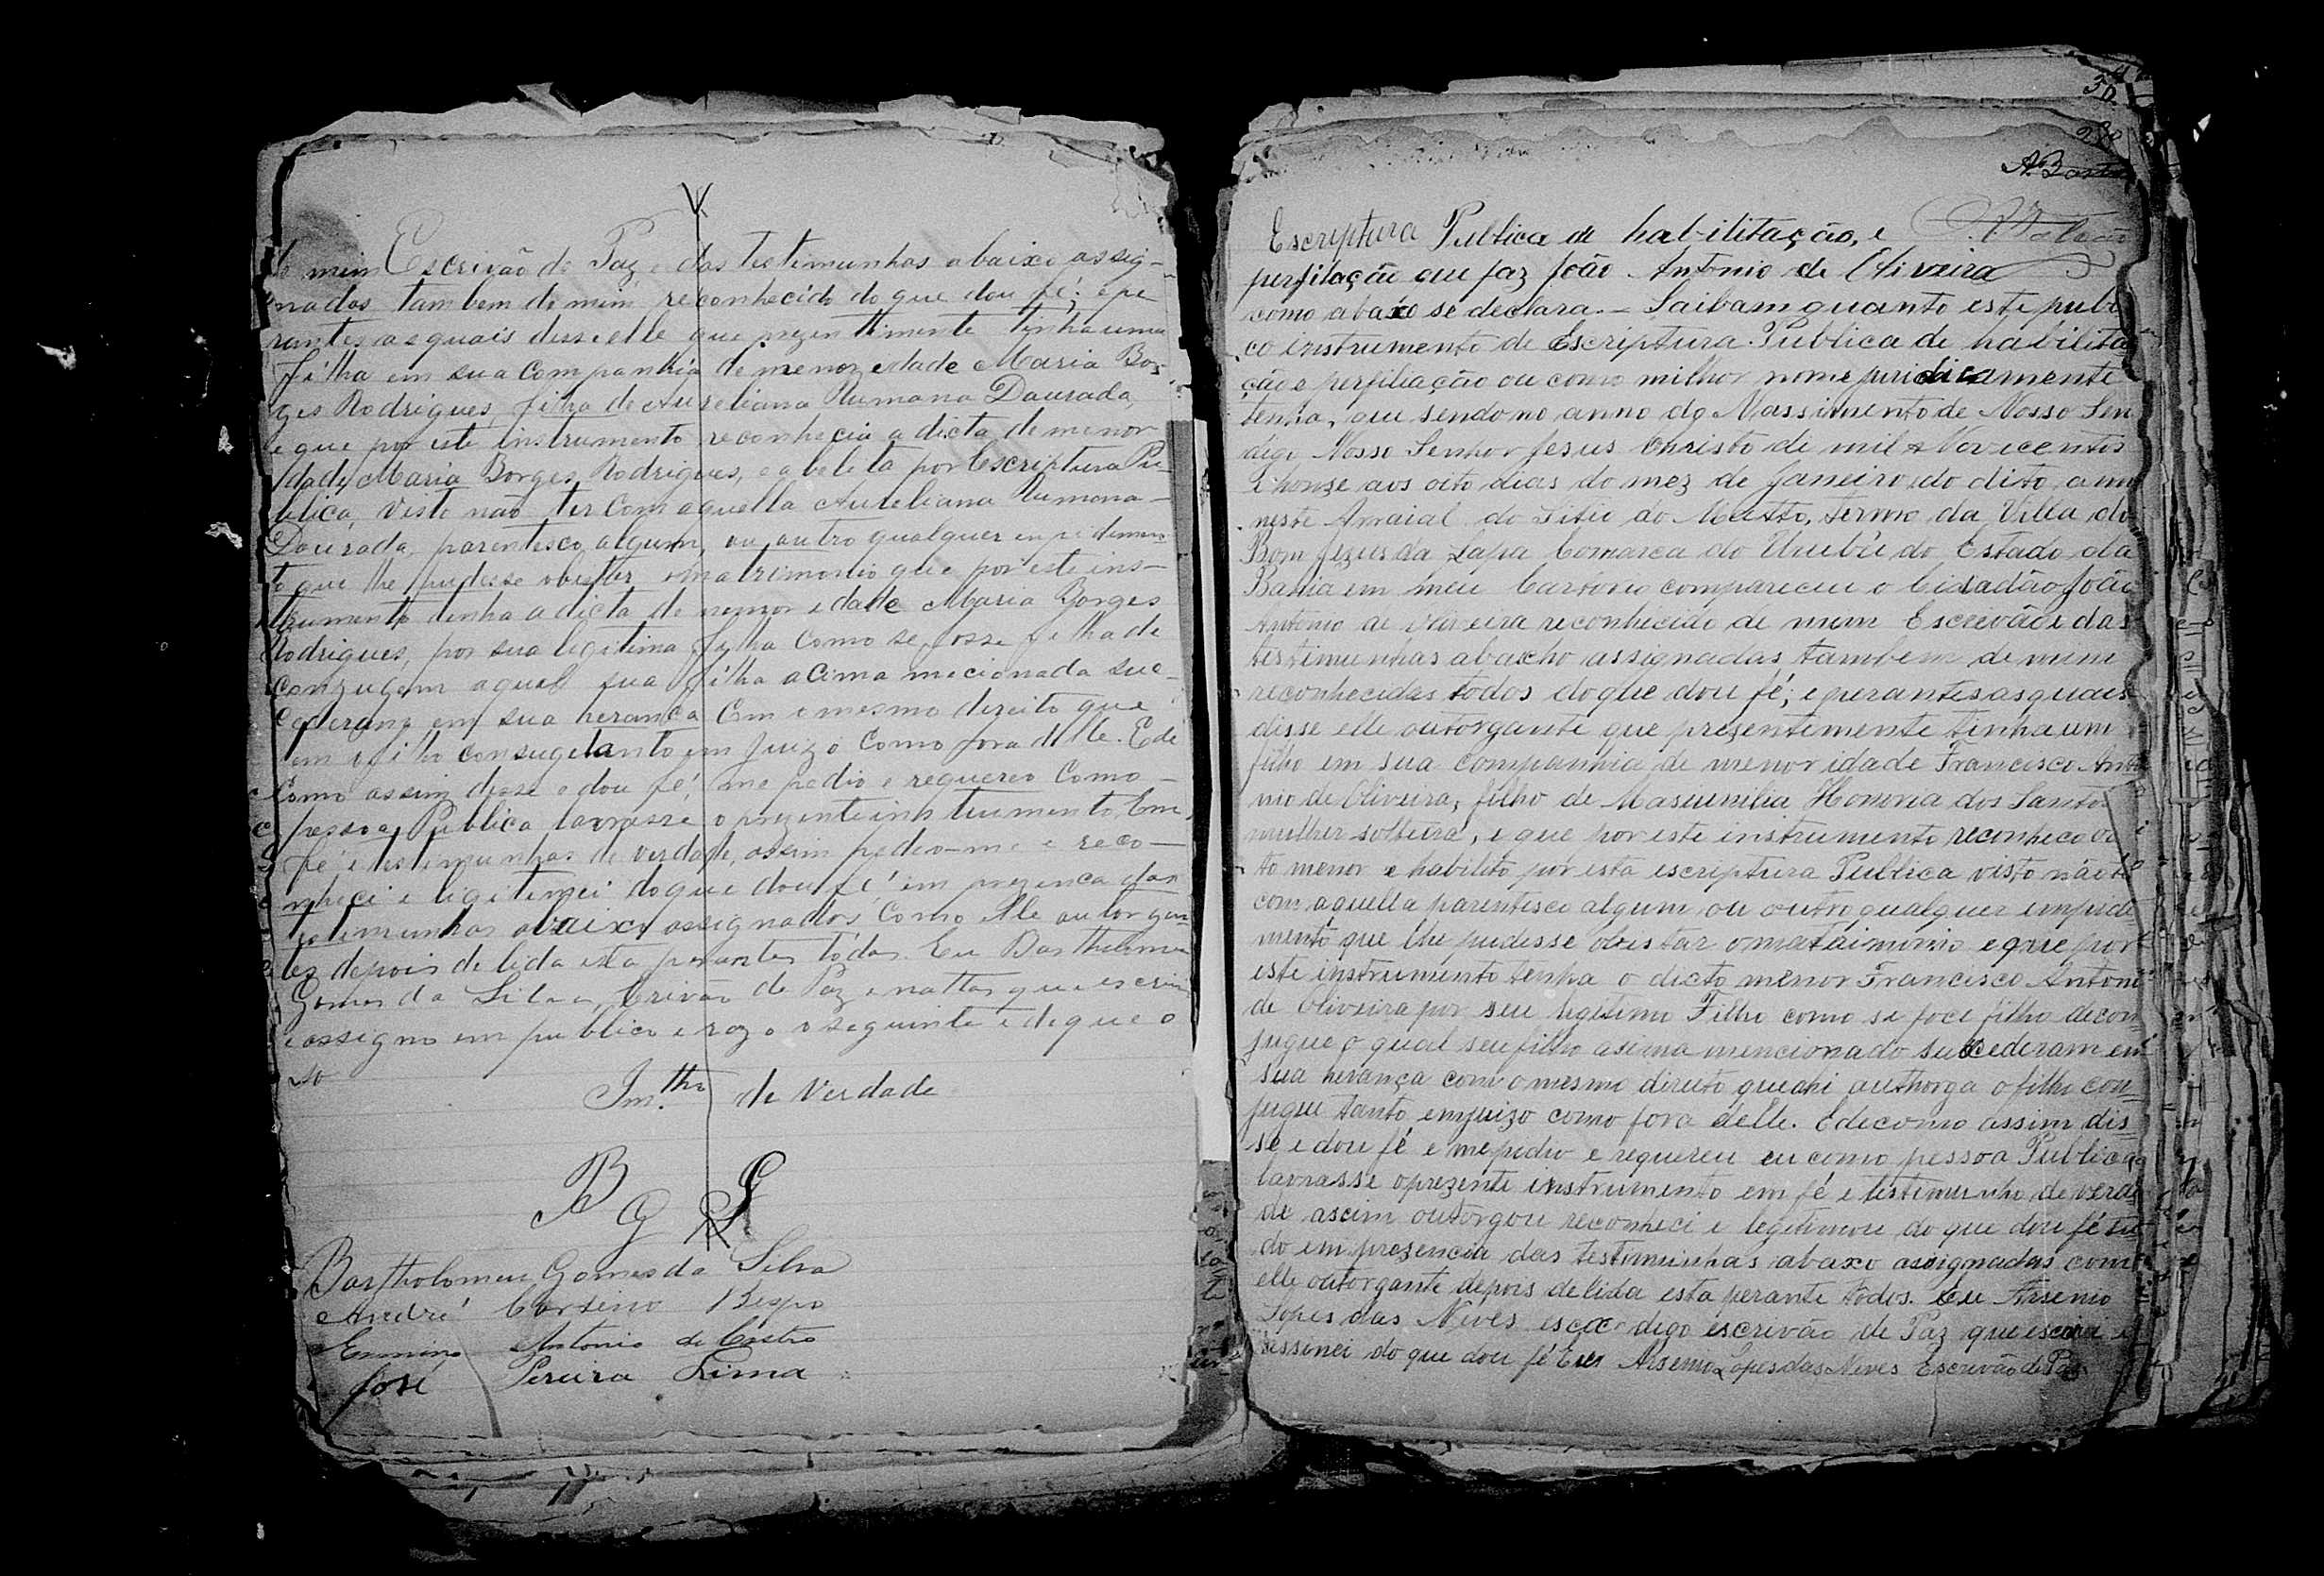 de mim Escrivão de Paz e das testimunhas abaixo assig-
nados tambem de mim reconhecido do que dou fé; e pe
rantes as quais disse elle que prezentimente tinha uma
filha em sua Companhia de menoz edade Maria Bor-
ges Rodrigues, filha de Aureliana Numana Dourada,
e que por este instrumento reconhecia a dicta de menor
Idade Maria Borges Rodrigues, e abelita por Escriptura Pu-
blica, visto não ter Com aquella Aureliana Numana
Dourada, parentesco algum, ou outro qualquer empidimen-
to que lhe pudesse obistar omatrimonio que por este ins-
trumento tenha a dicta de menor edade Maria Borges
Rodrigues, por sua legitima filha Como se fosse filha de
Conzugem aqual sua filha acima mecionada suc-
cederana em sua herança Com o mesmo direito que
em o filho consugetanto em Juizo Como fora delle. E de
Como assim disse e dou fé, me pedio e requereo Como
pessoa Publica lavrasse o prezente instrumento, Em
fé e testimunhas de verdade, assim pedio-me e reco-
nheci e ligitimei do que dou fé em prezença das
testimunhas abaixo assignados Como elle autorgan-
tes depois de lida esta perantes todos. Eu Bartholomeu
Gomes da Silva, Crivão de Paz e nattas que escrivi
e assigno em publico e razo o seguinte e de que o
so
Im.tho de Verdade
B G S
Bartholomeu Gomes da Silva
André Corsino Bispo
Ermino Antonio de Castro
José Pereira Lima
A. Bastos
Escriptura Publica de habilitação, e
perfilação que faz João Antonio de Oliveira
como abaixo se declara. – Saibam quanto este publi
co instrumento de Escriptura Publica de habilita-
ção e perfiliação ou como milhor nome juridicamente
tenha, que sendo no anno do Nassimento de Nosso Sen
digo Nosso Senhor Jesus Christo de mil e Novecentos
e honze aos oito dias do mez de Janeiro do dito anno
neste Arraial do Sitio do Matto, termo da Villa do
Bom Jezus da Lapa Comarca do Urubú do Estado da
Bahia em meu Cartorio compareceu o Cidadão João
Antonio de Oliveira reconhecido de mim Escrivão e das
testimunhas abaxho assignadas tambem de mim
reconhecidas todos do que dou fé; e perantes as quais
disse elle outorgante que prezentimente tinha um
filho em sua companhia de menor idade Francisco Anto
nio de Oliveira, filho de Masiminilia Honoria dos Santos
mulher solteira, e que por este instrumento reconheco o di
to menor e habilito por esta escriptura Publica visto não te
com aquella parentisco algum ou outro qualquer impide
mento que lhe pudesse obistar o mataimonio e que por
este instrumento tenha o dicto menor Francisco Antoni
de Oliveira por seu legitimo Filho como se foce filho decon-
jugue o qual seu filho asima mencionado succederam em
sua herança com o mesmo direito que ahi authorga o filho con-
jugue tanto emjuizo como fora delle. E decomo assim dis-
se e dou fé e me pedio e requereu eu como pessoa Publica
lavrasse o prezente instrumento em fé e testimunho de verda
de ascim outorgou reconheci e legitimou do que dou fé tu
do em presencia das testimunhas abaxo assignadas com
elle outorgante depois de lida esta perante todos. Eu Arsenio
Lopes das Neves escr digo escrivão de Paz que escrivi e
assinei do que dou fé Eu Arsenio Lopes das Neves Escrivão de Paz